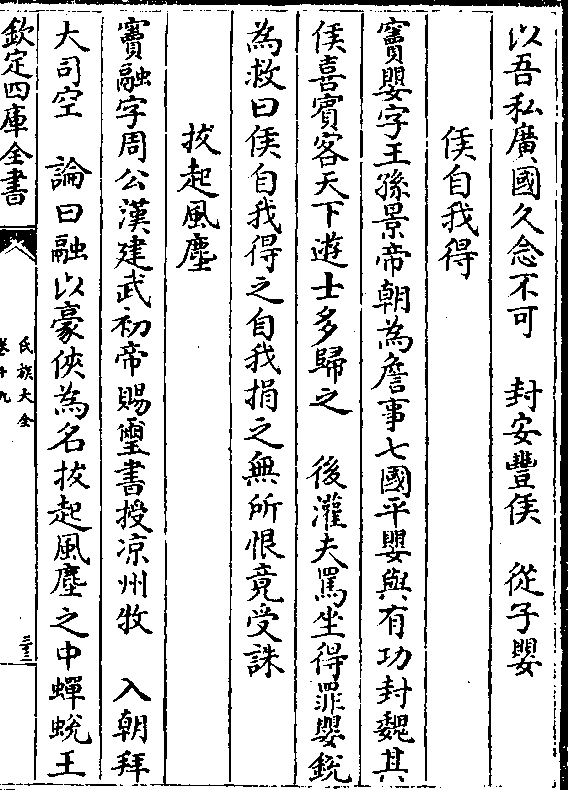 以吾私廣國久念不可　封安豐侯　從子嬰
侯自我得
竇嬰字王孫景帝朝為詹事七國平嬰與有功封魏其
侯喜賓客天下遊士多歸之　後灌夫罵坐得罪嬰銳
為救曰侯自我得之自我捐之無所恨竟受誅
拔起風塵
竇融字周公漢建武初帝賜璽書授凉州牧　入朝拜
大司空　論曰融以豪俠為名拔起風塵之中蟬蛻王
欽定四庫全書
氏族大全
卷十九
三十三